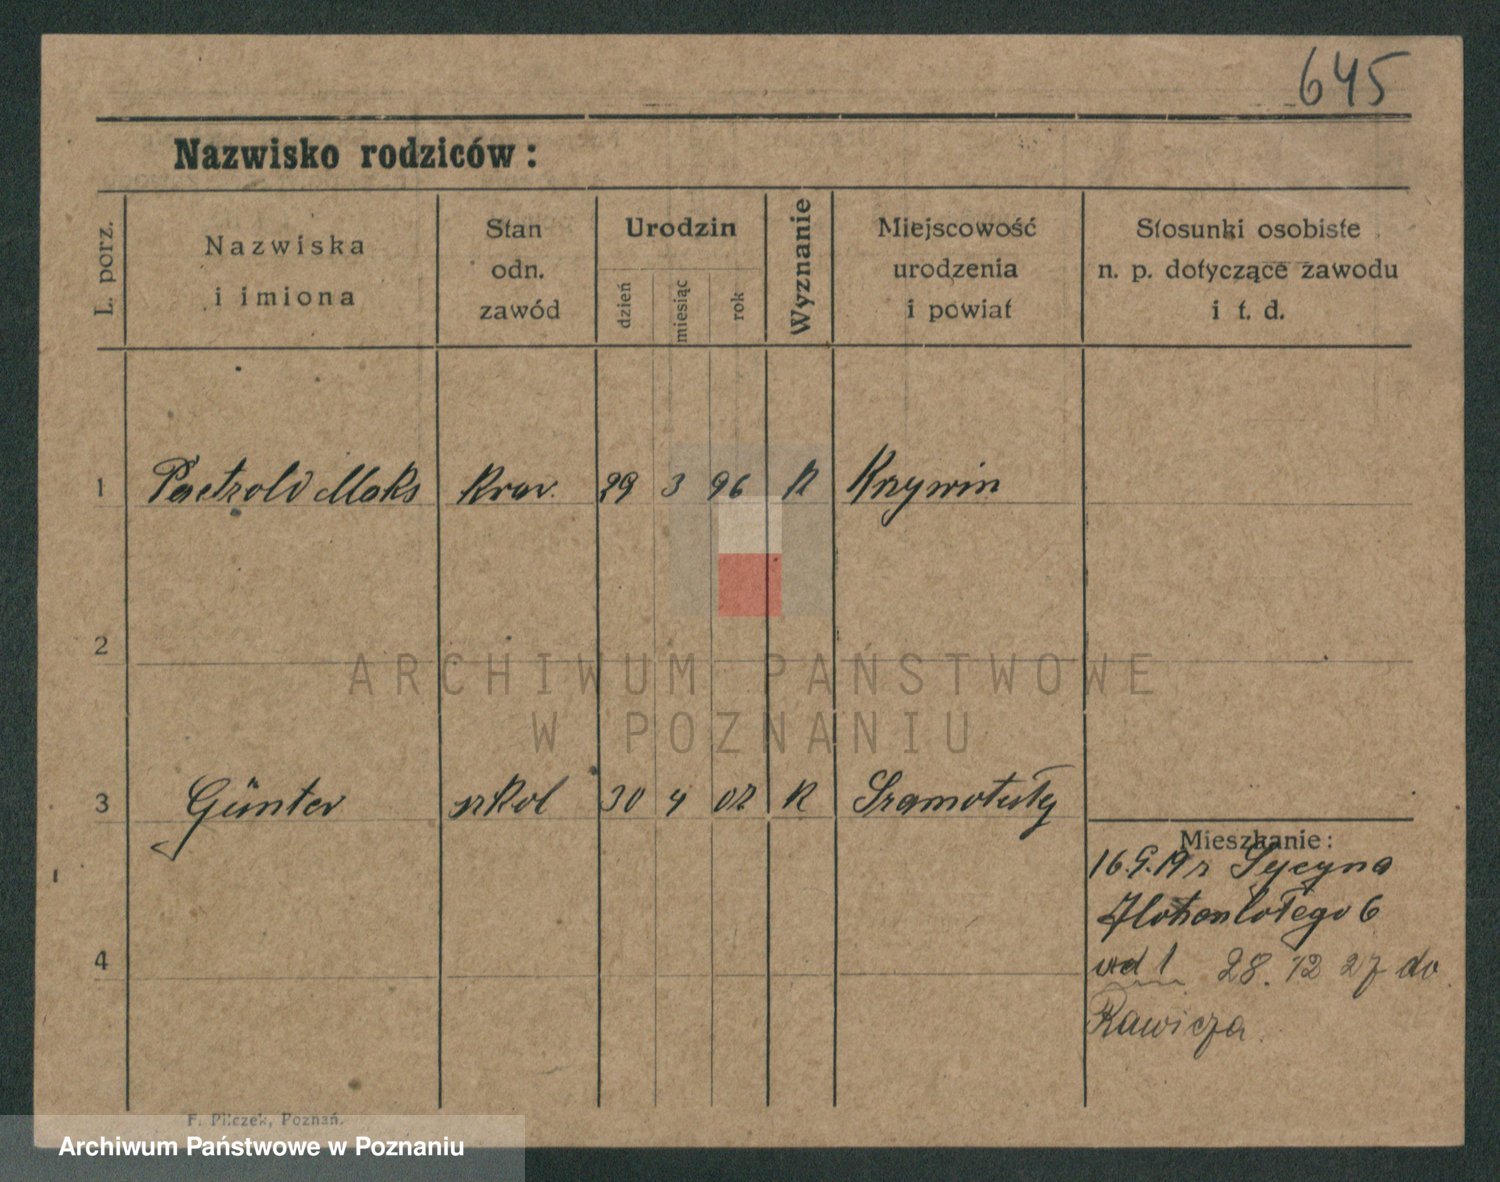 645
Nazwisko rodziców:
L. porz.
Nazwiska
i imiona
Stan
odn.
zawód
Urodzin
dzień
miesiąc
rok
Wyznanie
Miejscowość
urodzenia
i powiat
Stosunki osobiste
n. p. dotyczące zawodu
i t. d.
1 Paetzold Maks kraw. 29 3 96 K Krzywin
2
ARCHIWUM PAŃSTWOWE
W POZNANIU
3 Günter szkol 30 4 02 K Szamotuły
Mieszkanie:
16.9.19 r
6
4
28. 12 27 do
Rawicza
F. Pilczek, Poznań.
Archiwum Państwowe w Poznaniu